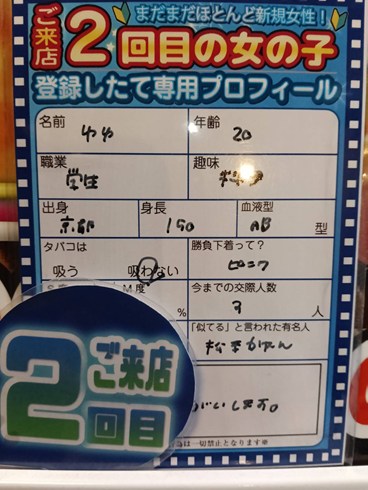 まだまだほとんど新規女性!
ご来店2回目の女の子
登録したて専用プロフィール
名前 ゆゆ 年齢 20
職業 学生 趣味
出身 京都 身長 150 血液型 AB 型
タバコは 吸う 吸わない 勝負下着って? ピンク
M度 % 今までの交際人数 3 人
「似てる」と言われた有名人
2ご来店
回目
は一切禁止となります※